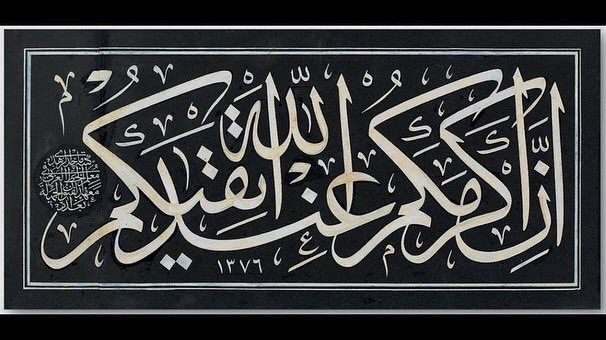 اِنَّ اكرمكم عند الله اتقیكم
١٣٧٦